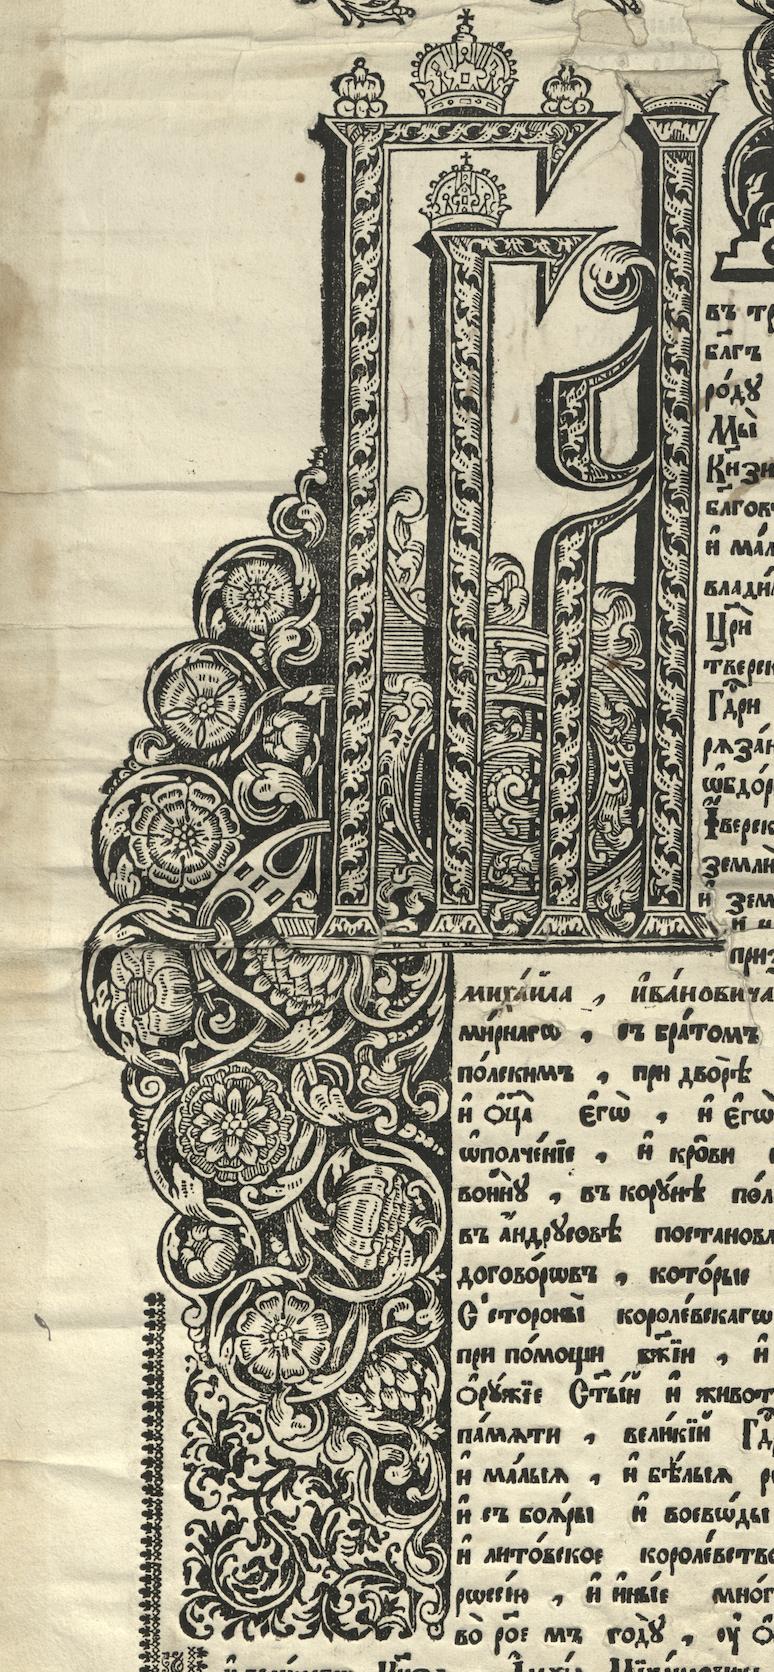 въ тр
бл҃гъ
ро́ду
Мы̀
Кн҃зи
бл҃гов
и҆ мал
влади
Цр҃ѝ
тверск
Гдр҃и
рѧза́н
ѡ҆бдо́р
І҆верск
землѝ
и҆ зем
и҆
при
миха́ила , и҆ва́новича
ми́рнагѡ , съ бра́томъ
по́лскимъ , при дворѣ̀
и҆ ѻ҆ц҃а̀ є҆гѡ̀ , и҆ є҆гѡ̀
ѡ҆полче́нїе , и҆ кро́ви
войну̀ , въ кору́нѣ пол
въ а҆ндру́совѣ постановл
догово́рѡвъ , кото́рые
С стороны̀ короле́вскагѡ
при по́мощи бж҃їи , и҆
Ѻ҆ру́жїе Ст҃ы́й и҆ живот
па́мѧти , вели́кїй Гд
и҆ ма́лыѧ , и҆ бѣ́лыѧ р
и҆ съ боѧ́ры и҆ воевѡ́ды
и҆ лито́вское короле́вств
рѡссі́ю , и҆ и҆ны́е мно́г
во̀ рѻ҃е мъ году̀ ,